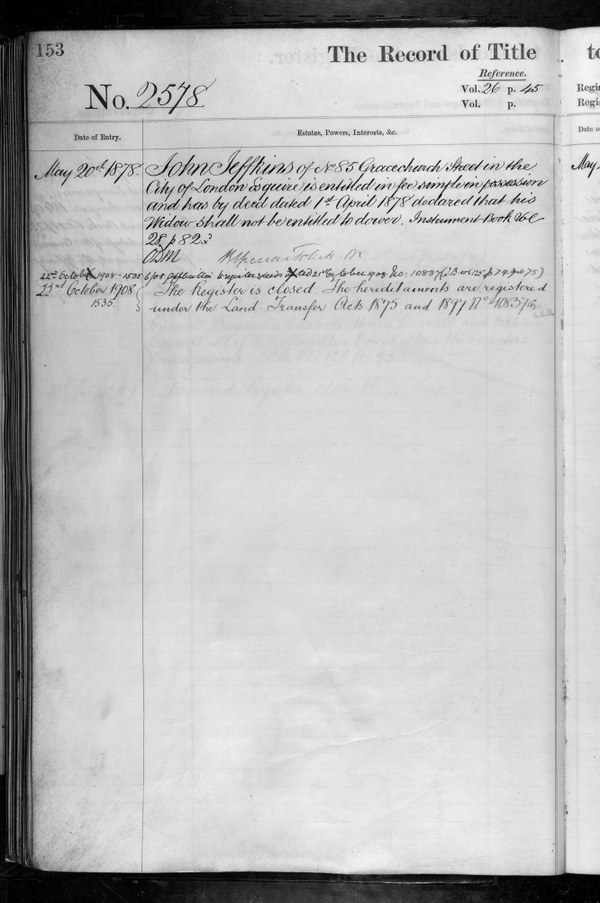 153
The Record of Title
Reference.
No. 2578
Vol. 26 p. 45
Vol. p.
Date of Entry.
Estates, Powers, Interests, &c.
May 20th 1878.
John Jeffkins of No 85 Gracechurch Street in the
City of London Esquire is entitled in fee simple in possession
and has by deed dated 1st April 1878 declared that his
Widow shall not be entitled to dower. Instrument Book
28 p 82
22nd October 1908 - 1535
dated 21st October 1908 No. 10837
22nd October 1908
1535.
The Register is closed The hereditaments are registered
under the Land Transfer Acts 1875 and 1897 No 108376
to
Regi
Regi
Date o
May